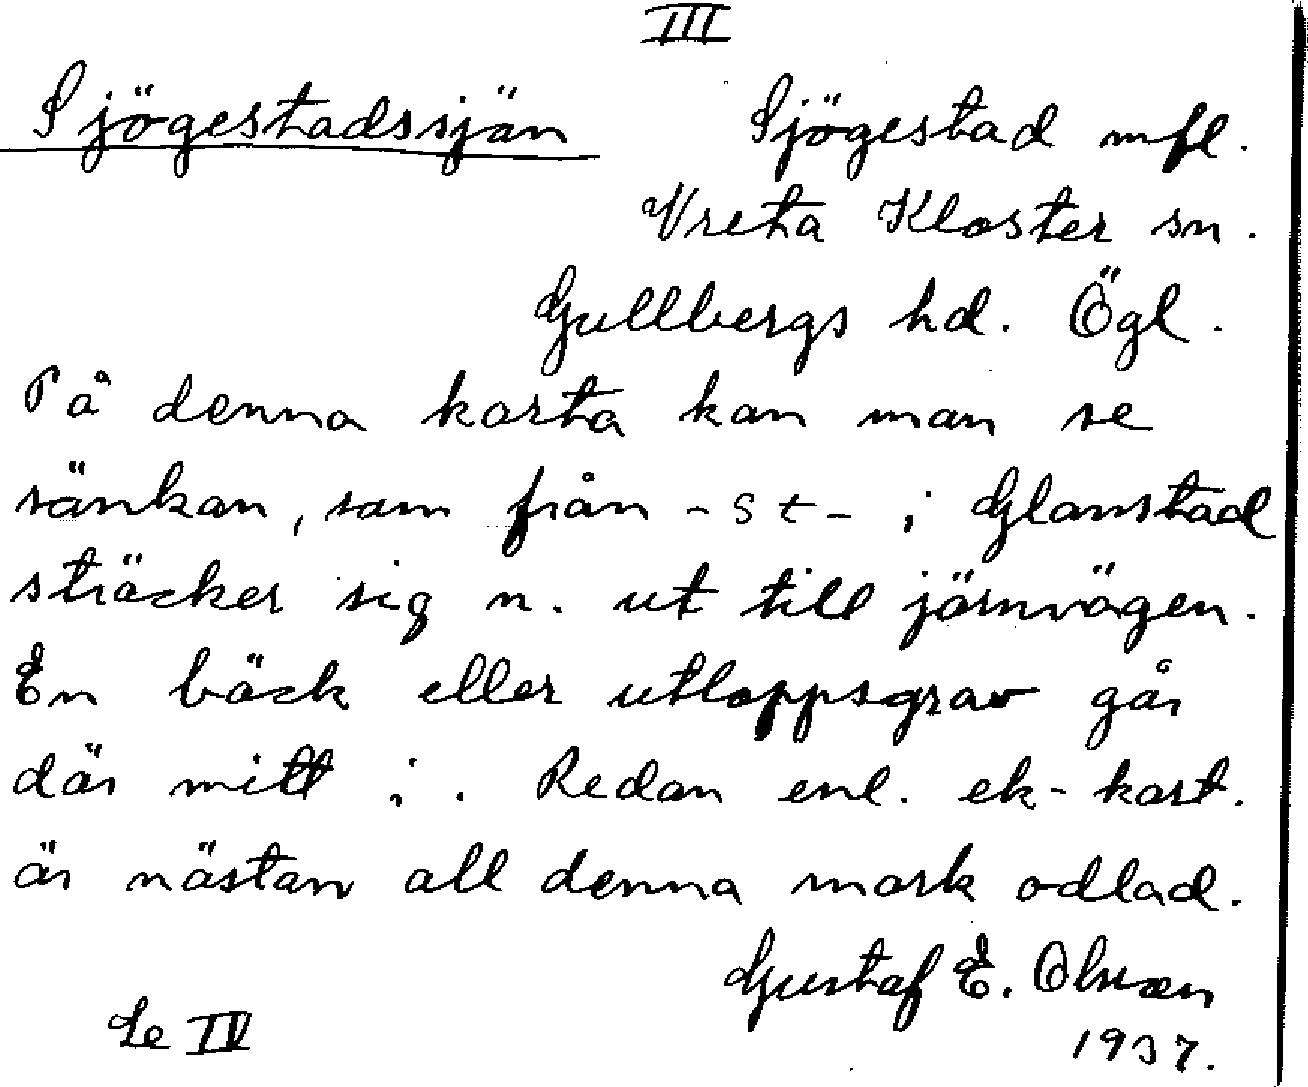 III
Sjögestadssjön Sjögestad mfl.
Vreta Kloster sn.
Gullbergs hd. Ögl.
På denna karta kan man se
sänkan, som från -st- i Glanstad
sträcker sig n. ut till järnvägen.
En bäck eller utloppsgrav går
där mitt i. Redan enl. ek-kart.
är nästan all denna mark odlad.
Gustaf E. Olsson
Se IV 1937.